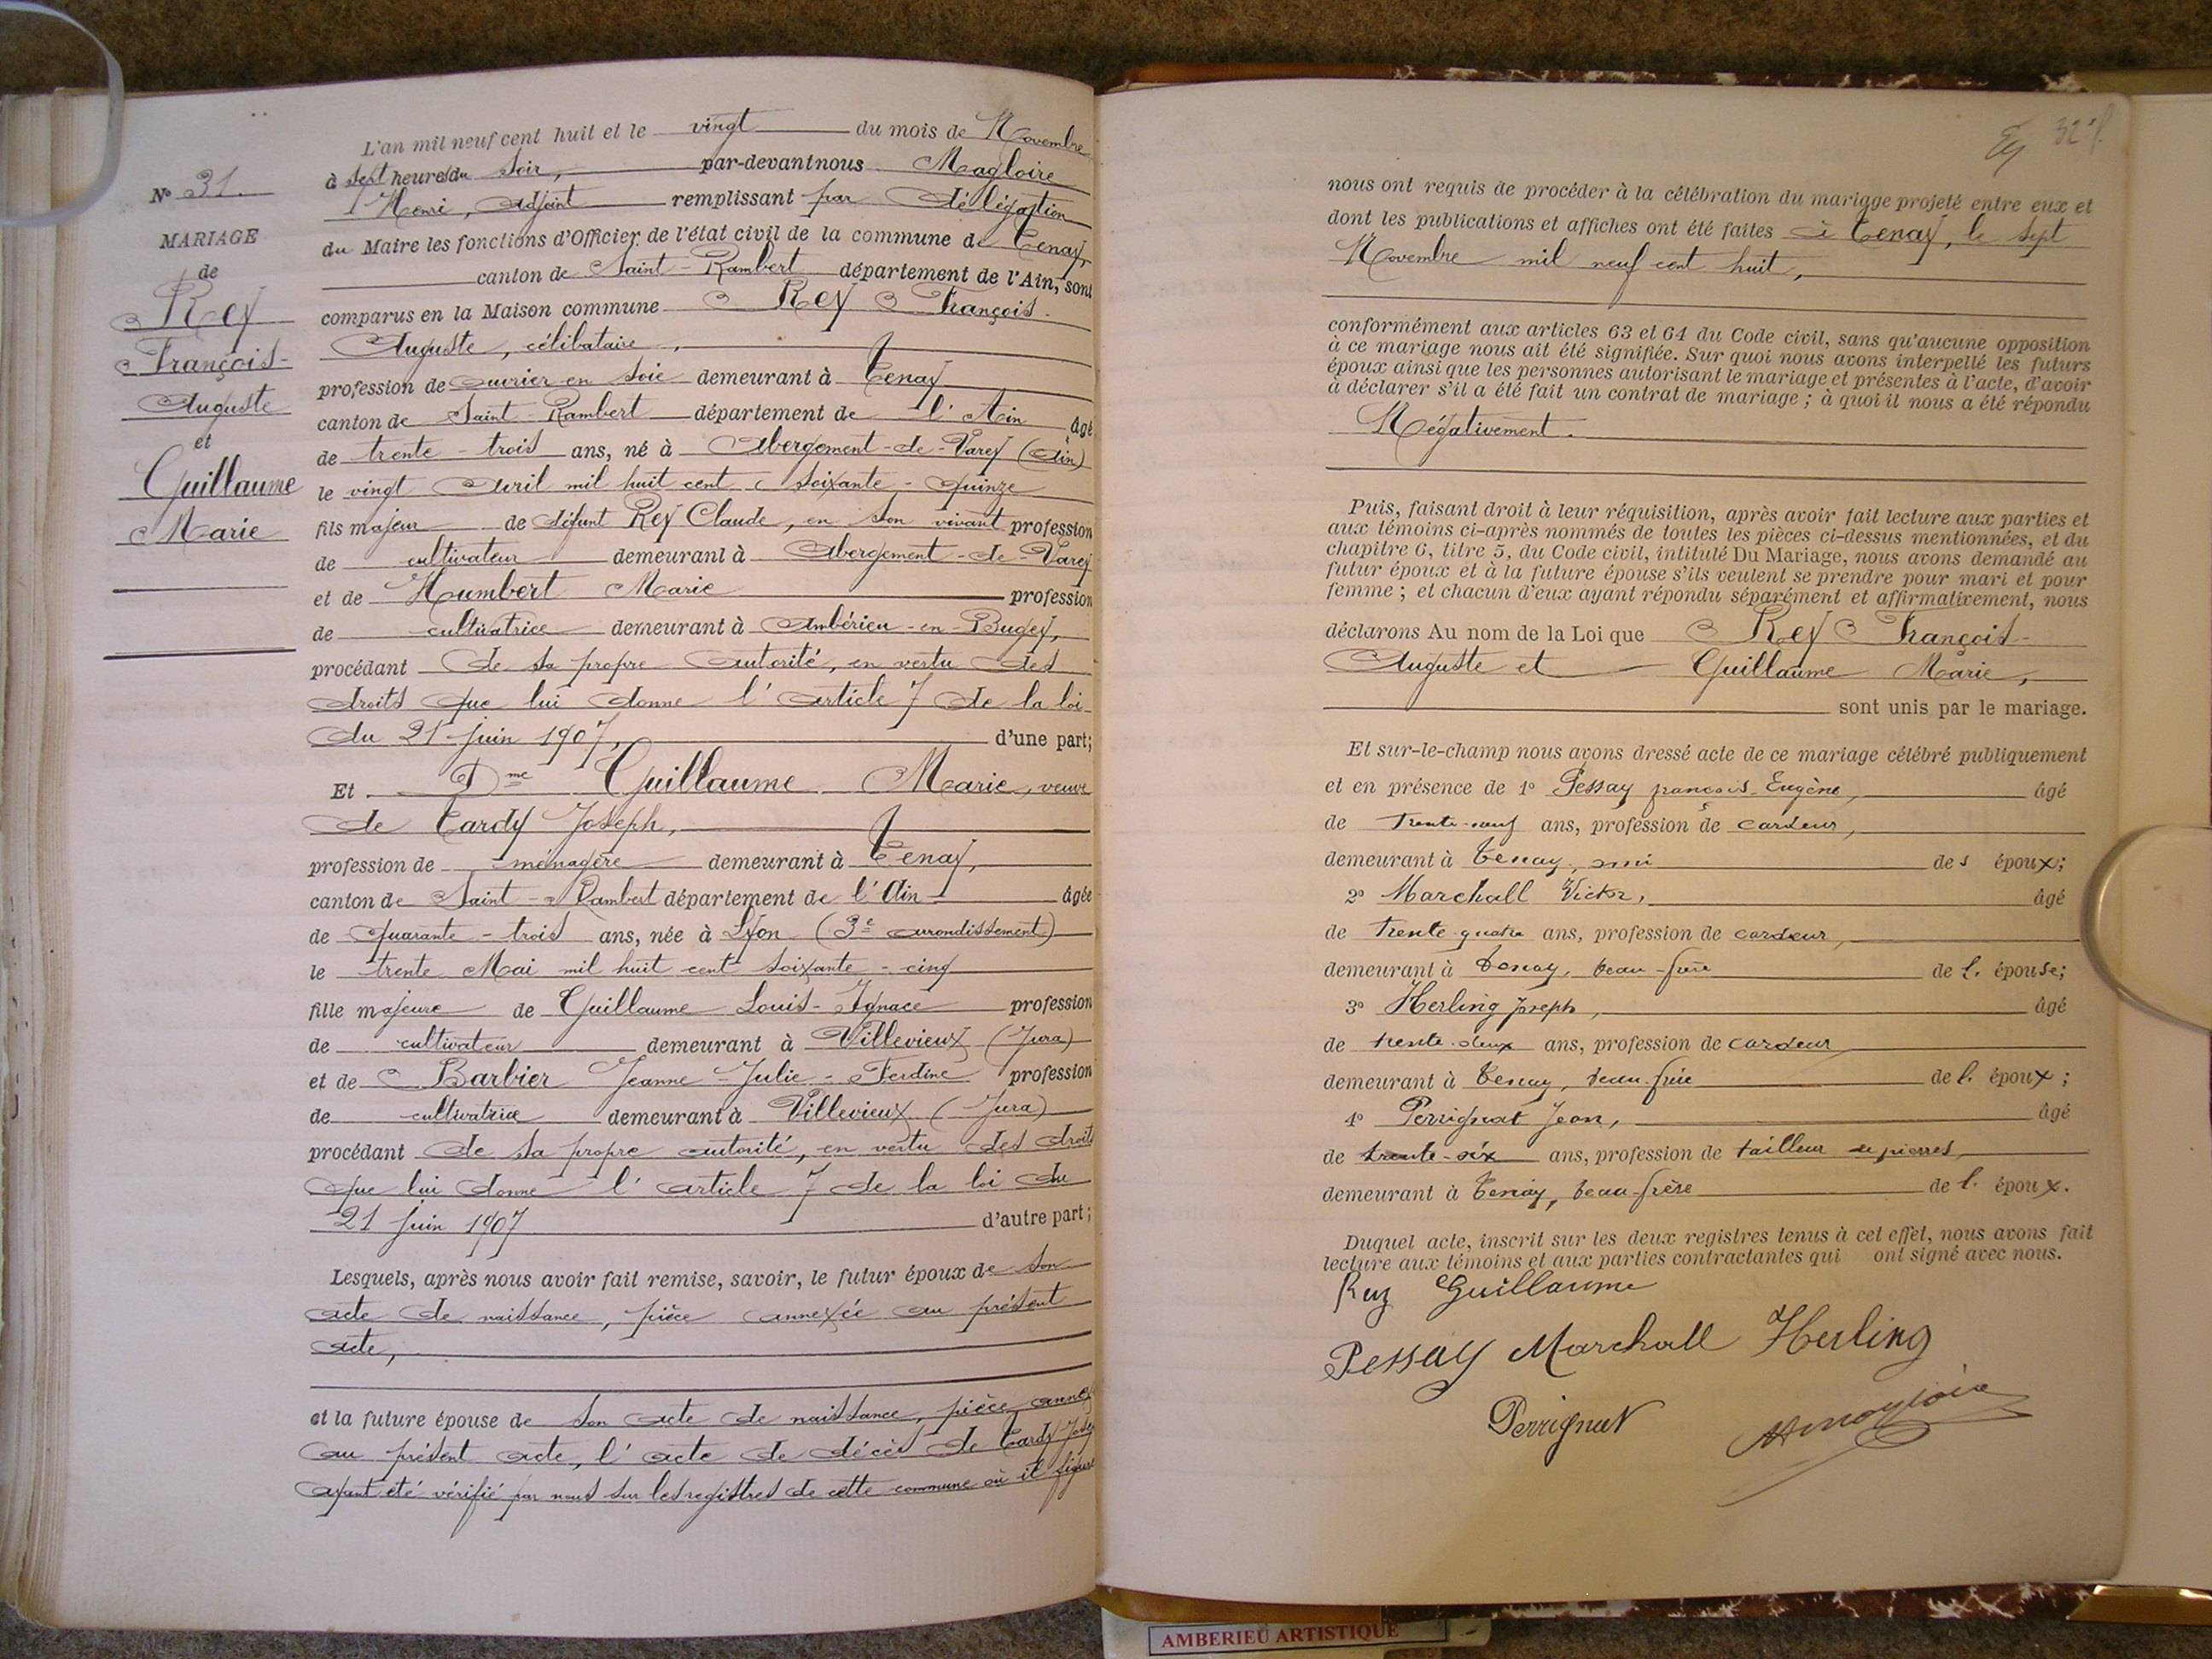 N° 31
MARIAGE
de
Rey
François-
Auguste
et
Guillaume
Marie
L'an mil neuf cent huit et le vingt du mois de Novembre
à sept heures du soir, par-devant nous Magloire
Henri, adjoint remplissant par délégation
du Maire les fonctions d'Officier de l'état civil de la commune de Tenay,
canton de Saint-Rambert département de l'Ain, sont
comparus en la Maison commune Rey François-
Auguste, célibataire,
profession de ouvrier en soie demeurant à Tenay
canton de Saint-Rambert département de l'Ain âgé
de trente-trois ans, né à Abergement-de-Varey (Ain)
le vingt Avril mil huit cent soixante-quinze
fils majeur de défunt Rey Claude, en son vivant profession
de cultivateur demeurant à Abergement-de-Varey
et de Humbert Marie profession
de cultivatrice demeurant à Ambérieu-en-Bugey,
procédant de sa propre autorité, en vertu des
droits que lui donne l'article 7 de la loi
du 21 juin 1907, d'une part;
Et Dme Guillaume Marie, veuve
de Tardy Joseph,
profession de ménagère demeurant à Tenay,
canton de Saint-Rambert département de l'Ain âgée
de quarante-trois ans, née à Lyon (3e arrondissement)
le trente Mai mil huit cent soixante-cinq
fille majeure de Guillaume Louis-Ignace profession
de cultivateur demeurant à Villevieux (Jura)
et de Barbier Jeanne-Julie-Ferdine profession
de cultivatrice demeurant à Villevieux (Jura)
procédant de sa propre autorité, en vertu des droits
que lui donne l'article 7 de la loi du
21 juin 1907 d'autre part;
Lesquels, après nous avoir fait remise, savoir, le futur époux de son
acte de naissance, pièce annexée au présent
acte,
et la future épouse de son acte de naissance, pièce annex
au présent acte, l'acte de décès de Tardy Josep
ayant été vérifié par nous sur les registres de cette commune où il figure
32
nous ont requis de procéder à la célébration du mariage projeté entre eux et
dont les publications et affiches ont été faites à Tenay, le sept
Novembre mil neuf cent huit,
conformément aux articles 63 et 64 du Code civil, sans qu'aucune opposition
à ce mariage nous ait été signifiée. Sur quoi nous avons interpellé les futurs
époux ainsi que les personnes autorisant le mariage et présentes à l'acte, d'avoir
à déclarer s'il a été fait un contrat de mariage; à quoi il nous a été répondu
Négativement.
Puis, faisant droit à leur réquisition, après avoir fait lecture aux parties et
aux témoins ci-après nommés de toutes les pièces ci-dessus mentionnées, et du
chapitre 6, titre 5, du Code civil, intitulé Du Mariage, nous avons demandé au
futur époux et à la future épouse s'ils veulent se prendre pour mari et pour
femme; et chacun d'eux ayant répondu séparément et affirmativement, nous
déclarons Au nom de la Loi que Rey François-
Auguste et Guillaume Marie,
sont unis par le mariage.
Et sur-le-champ nous avons dressé acte de ce mariage célébré publiquement
et en présence de 1° Pessay françois-Eugène, âgé
de trente-neuf ans, profession de cardeur,
demeurant à Tenay, ami des époux;
2° Marchall Victor, âgé
de trente-quatre ans, profession de cardeur,
demeurant à Tenay, beau-frère de l. épouse;
3° Herling Joseph, âgé
de trente-deux ans, profession de cardeur
demeurant à Tenay, beau-frère de l. époux;
4° Perrignat Jean, âgé
de trente-six ans, profession de tailleur de pierres,
demeurant à Tenay, beau-frère de l. époux.
Duquel acte, inscrit sur les deux registres tenus à cet effet, nous avons fait
lecture aux témoins et aux parties contractantes qui ont signé avec nous.
Rey Guillaume
Pessay Marchall Herling
Perrignat Hmagloire
AMBERIEU ARTISTIQUE